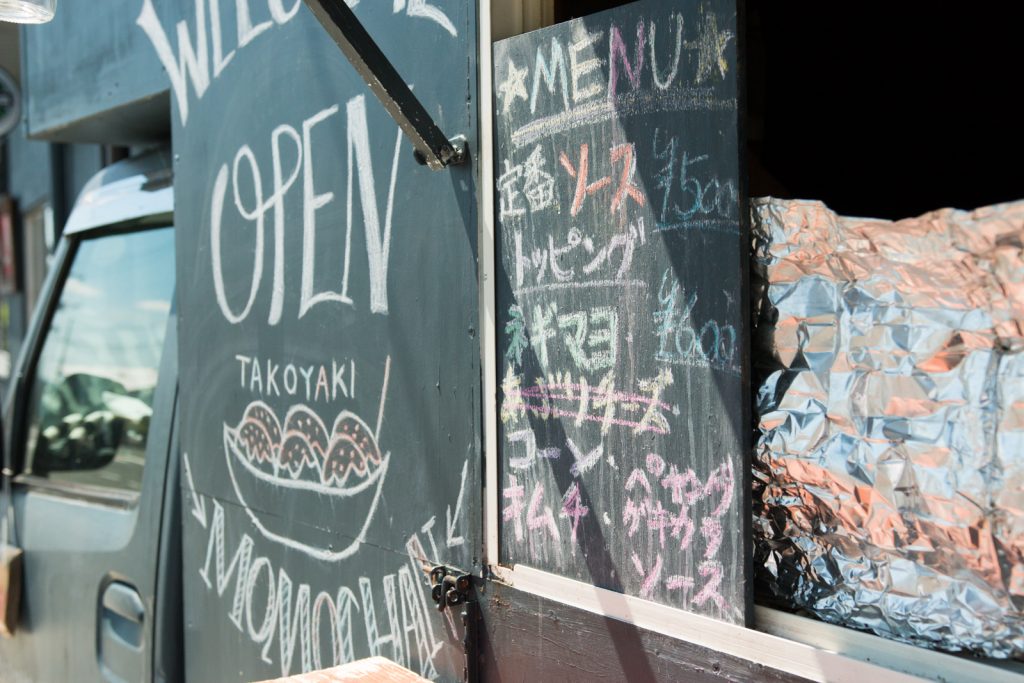 WELCOME
OPEN
TAKOYAKI
MOMOCHA
☆MENU☆
定番 ソース ¥500
トッピング
ネギマヨ ¥600
コーン
キムチ
ソース